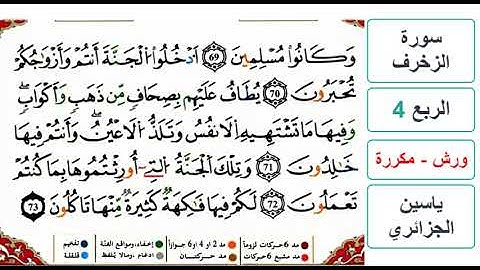 وَكَانُواْ مُسْلِمِينَ 69 اَدْخُلُواْ الْجَنَّةَ أَنتُمْ وَأَزْوَٰجُكُمْ
تُحْبَرُونَ 70 يُطَافُ عَلَيْهِم بِصِحَافٍ مِّن ذَهَبٍ وَأَكْوَابٍ
وَفِيهَا مَا تَشْتَهِيهِ اِلَانفُسُ وَتَلَذُّ اُلَاعْيُنُ وَأَنتُمْ فِيهَا
خَٰلِدُونَ 71 وَتِلْكَ الْجَنَّةُ التِے أُورِثْتُمُوهَا بِمَا كُنتُمْ
تَعْمَلُونَ 72 لَكُمْ فِيهَا فَٰكِهَةٌ كَثِيرَةٌ مِّنْهَا تَاكُلُونَ 73
مد 6 حركات لزوماً مد 2 او 4 او 6 جوازاً إخفاء، ومواقع الغنة تفخيم
مد مشبع 6 حركات مد حركتان ادغام، ومالا يلفظ قلقلة
سورة
الزخرف
الربع 4
ورش - مكررة
ياسين
الجزائري